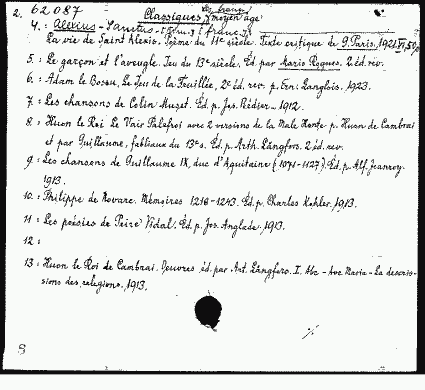 2. 62087 Classiques franç. du moyen âge
4. : Alexius - Sanctus -
La vie de Saint Alexis. Poème du 11e siècle. Texte critique de G. Paris. 1921
5. : Le garçon et l'aveugle. Jeu du 13e siècle. Éd. par Mario Roques. 2 éd. rev.
6. : Adam le Bossu, Le Jeu de la Feuillée, 2e éd. rev. p. Ern. Langlois. 1923.
7. : Les chansons de Colin Muset. Éd. p. Jos. Bédier. - 1912.
8 : Huon le Roi Le Vair Palefroi avec 2 versions de la Male Honte p. Huon de Cambrai
et par Guillaume, fabliaux du 13e s. Éd. p. Arth. Långfors. 2 éd. rev.
9 : Les chansons de Guillaume IX, duc d'Aquitaine (1071-1127). Éd. p. Alf. Jeanroy.
1913.
10 : Philippe de Novare. Mémoires 1218-1243. Éd. p. Charles Kohler. 1913.
11 : Les poésies de Peire Vidal. Éd. p. Jos. Anglade. 1913.
12 :
13 : Huon le Roi de Cambrai. Oeuvres, éd. par Art. Långfors. I. Abc - Ave Maria - La descris-
sions des relegions. 1913.